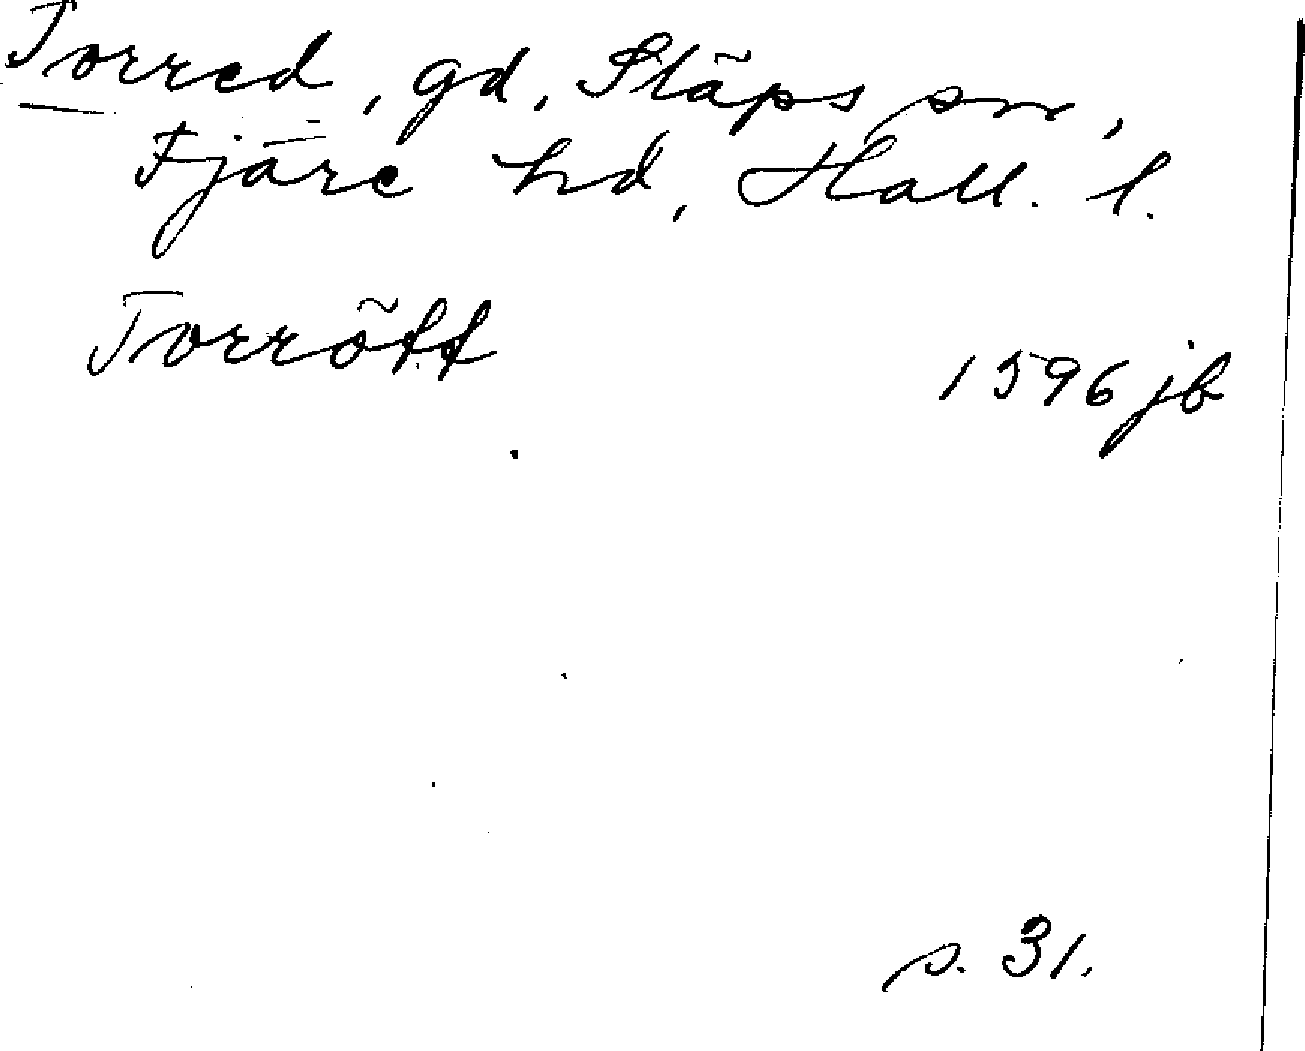 Torred, gd, Släps sn,
Fjäre hd, Hall. l.
Torrött 1596 jb
s. 31.